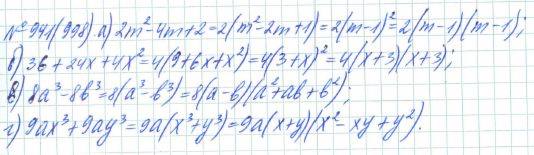 № 941(998) а) 2m²-4m+2=2(m²-2m+1)=2(m-1)²=2(m-1)(m-1);
б) 36+24x+4x²=4(9+6x+x²)=4(3+x)²=4(x+3)(x+3);
в) 8a³-8b³=8(a³-b³)=8(a-b)(a²+ab+b²);
г) 9ax³+9ay³=9a(x³+y³)=9a(x+y)(x²-xy+y²).